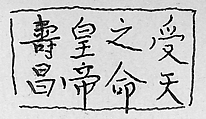 受天
之命
皇帝
壽昌